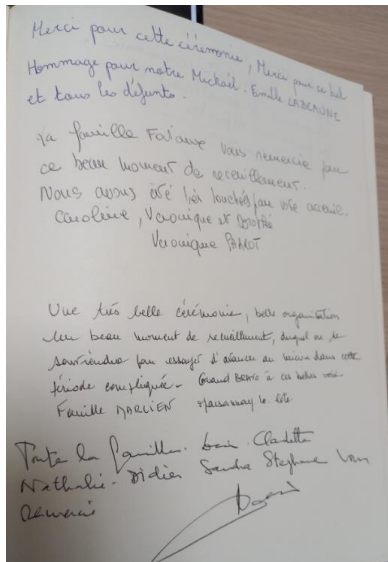 Merci pour cette cérémonie, Merci pour ce bel
Hommage pour notre Mickaël. Famille LADCAUNE
et tous les défunts.
La famille vous remercie pour
ce beau moment de recueillement.
Nous avons été très touchés par votre accueil.
Caroline, Véronique et
Véronique
Une très belle cérémonie, belle organisation
Un beau moment de recueillement, duquel on se
souviendra pour essayer d'avancer au mieux dans cette
période compliquée. Grand BRAVO à ces belles voix.
Famille MARLIEN Marsannay la Côte
Toute la famille. Claudette
Nathalie - Didier Sandra Stéphane
Remercie